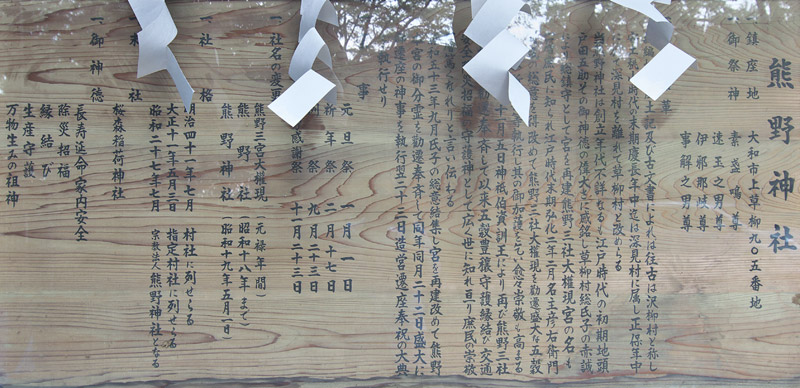 熊野神社
一鎮座地 大和市上草柳九〇五番地
一御祭神 素盞嗚尊
速玉之男尊
伊邪那岐尊
事解之男尊
革
土記及び古文書によれば往古は沢柳村と称し
時代の末期慶長年中迄は深見村に属し正保年中
深見村と離れて草柳村と改めらる
当熊野神社は創立年代不詳なるも江戸時代の初期地頭
戸田五助その御神徳の偉大さに感銘し草柳村総氏子の赤誠
により総鎮守として宮を再建熊野三社大権現宮の名も
庶民に知られ江戸時代末期弘化二年二月名主彦右衛門
改めて熊野三社大権現を勧遷盛大な五穀
執行し其の御加護をたたい愈々崇敬も高まる
十月五日神祇伯資訓王により再び熊野三社
奉斉して以来五穀豊穣守護縁結び交通
招福の守護神として広く世に知れ亘り庶民の崇敬
篤きなれりと言い伝わる
五十三年九月氏子の総意結集し宮を再建改めて熊野
宮の御分霊を勧遷奉斉して同年同月二十二日盛大に
遷座の神事を執行翌二十三日造営遷座奉祝の大典
執行せり
事
元旦祭 一月一日
祈年祭 二月十七日
祭 九月二十三日
感謝祭 十一月二十三日
一社名の変更
熊野三宮大権現 (元禄年間)
熊野 社 (昭和十八年まで)
熊野神社 (昭和十九年五月一日)
一社格
明治四十一年七月 村社に列せらる
大正十一年五月三日 指定村社に列せらる
昭和二十七年七月 宗教法人熊野神社となる
一末社
桜森稲荷神社
一御神徳
長寿延命 家内安全
除災招福
縁結び
生産守護
万物生みの祖神